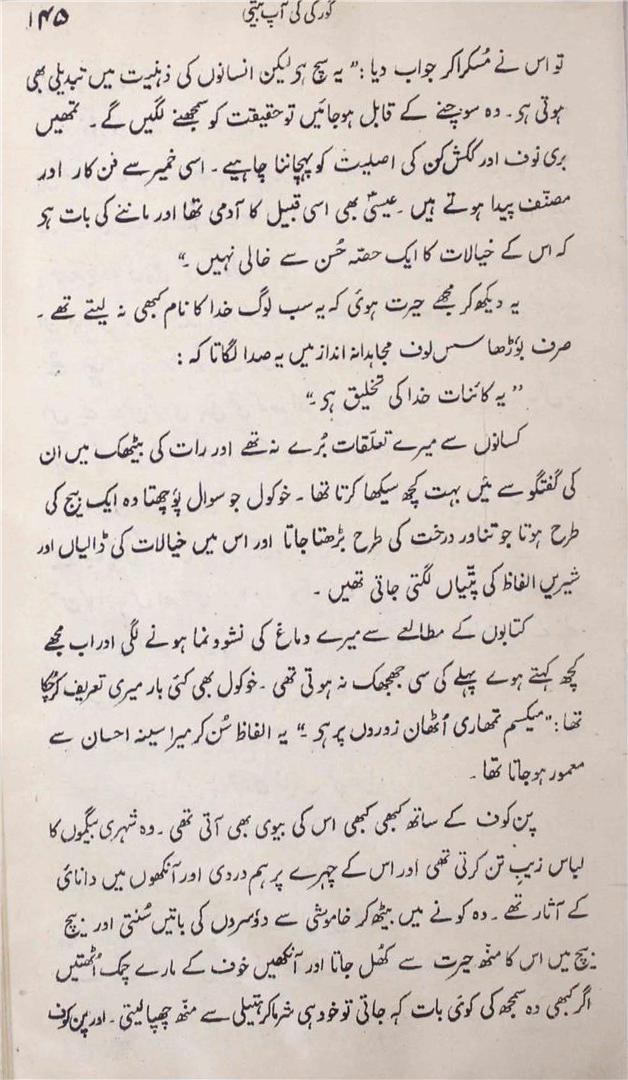 گورکی کی آپ بیتی
۱۴۵
تو اس نے مُسکرا کر جواب دیا: ”یہ سچ ہو لیکن انسانوں کی ذہنیت میں تبدیلی بھی
ہوتی ہو۔ وہ سوچنے کے قابل ہو جائیں تو حقیقت کو سمجھنے لگیں گے۔ تمھیں
بری نوف اور گگش کن کی اصلیت کو پہچاننا چاہیے۔ اسی خمیر سے فن کار اور
مصنّف پیدا ہوتے ہیں۔ عیسیٰؑ بھی اسی قبیل کا آدمی تھا اور ماننے کی بات ہو
کہ اس کے خیالات کا ایک حصّہ حُسن سے خالی نہیں۔“
یہ دیکھ کر مجھے حیرت ہوئی کہ یہ سب لوگ خدا کا نام کبھی نہ لیتے تھے۔
صرف بؤڑھا سس لوف مجاہدانہ انداز میں یہ صدا لگاتا کہ:
”یہ کائنات خدا کی تخلیق ہو۔“
کسانوں سے میرے تعلّقات بُرے نہ تھے اور رات کی بیٹھک میں ان
کی گفتگو سے مَیں بہت کچھ سیکھا کرتا تھا۔ خوکول جو سوال پؤچھتا وہ ایک بیج کی
طرح ہوتا جو تناور درخت کی طرح بڑھتا جاتا اور اس میں خیالات کی ڈالیاں اور
شیریں الفاظ کی پتّیاں لگتی جاتی تھیں۔
کتابوں کے مطالعے سے میرے دماغ کی نشوونما ہونے لگی اور اب مجھے
کچھ کہتے ہوے پہلے کی سی جھجھک نہ ہوتی تھی۔ خوکول بھی کئی بار میری تعریف کر چکا
تھا: ”میکسم تمھاری اُٹھان زوروں پر ہو۔“ یہ الفاظ سُن کر میرا سینہ احسان سے
معمور ہو جاتا تھا۔
پن کوف کے ساتھ کبھی کبھی اس کی بیوی بھی آتی تھی۔ وہ شہری بیگموں کا
لباس زیبِ تن کرتی تھی اور اس کے چہرے پر ہم دردی اور آنکھوں میں دانائی
کے آثار تھے۔ وہ کونے میں بیٹھ کر خاموشی سے دؤسروں کی باتیں سُنتی اور بیچ
بیچ میں اس کا منھ حیرت سے کھُل جاتا اور آنکھیں خوف کے مارے چمک اُٹھتیں
اگر کبھی وہ سمجھ کی کوئی بات کہ جاتی تو خود ہی شرما کر ہتیلی سے منھ چھپا لیتی۔ اور پن کوف